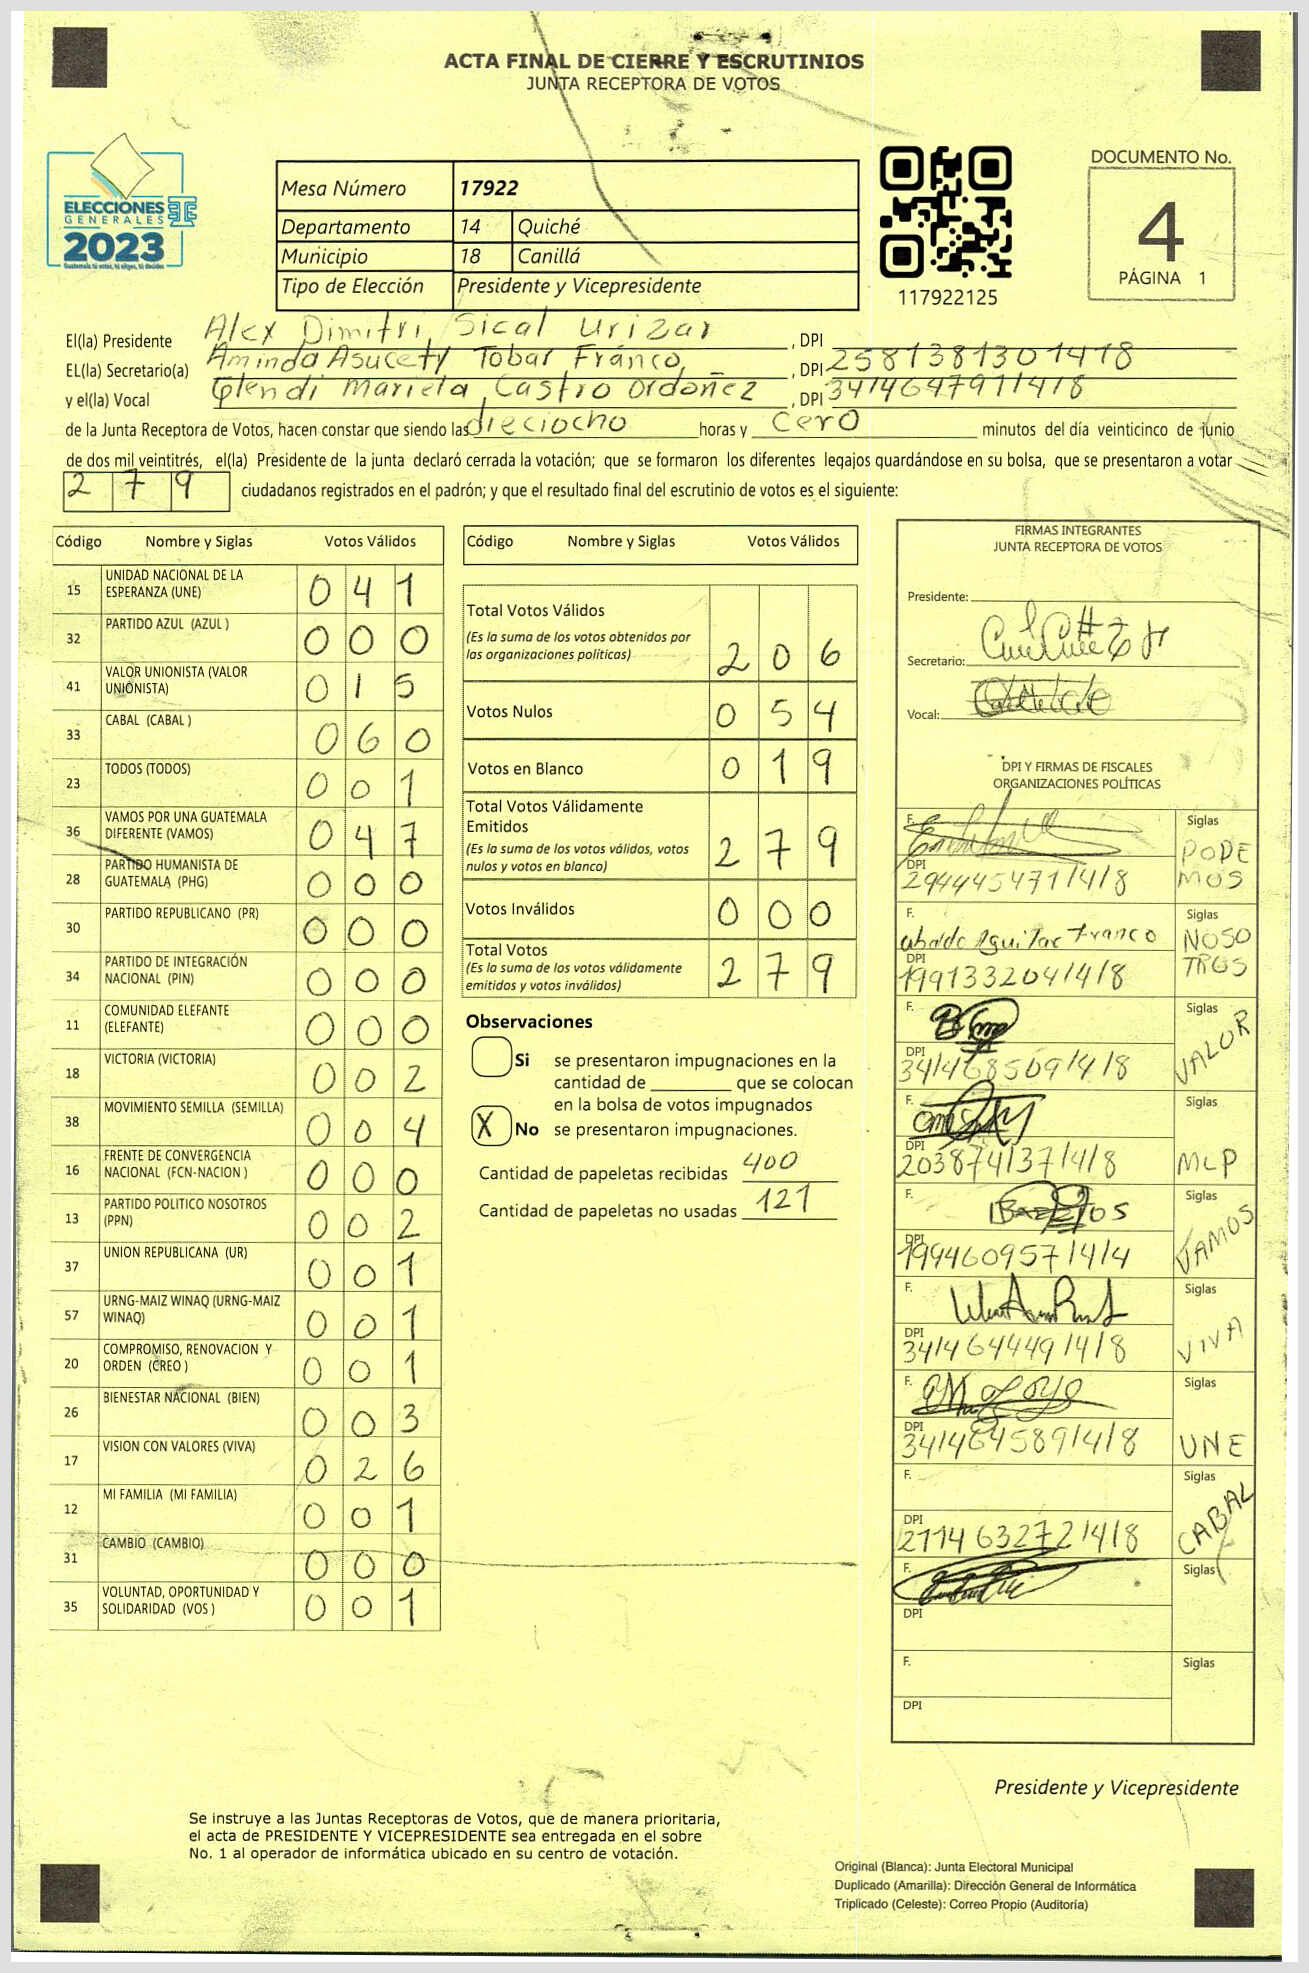 ACTA FINAL DE CIERRE Y ESCRUTINIOS
JUNTA RECEPTORA DE VOTOS
ELECCIONES
GENERALES
2023
Guatemala tú votas, tú eliges, tú decides
Mesa Número 17922
Departamento 14 Quiché
Municipio 18 Canillá
Tipo de Elección Presidente y Vicepresidente
117922125
DOCUMENTO No.
4
PÁGINA 1
El(la) Presidente Alex Dimitri Sical Urizar , DPI
EL(la) Secretario(a) Aminda Asucety Tobar Franco , DPI 2581381301418
y el(la) Vocal Glendi Mariela Castro Ordoñez , DPI 3414647911418
de la Junta Receptora de Votos, hacen constar que siendo las dieciocho horas y cero minutos del día veinticinco de junio
de dos mil veintitrés, el(la) Presidente de la junta declaró cerrada la votación; que se formaron los diferentes legajos guardándose en su bolsa, que se presentaron a votar
279 ciudadanos registrados en el padrón; y que el resultado final del escrutinio de votos es el siguiente:
Código Nombre y Siglas Votos Válidos
15 UNIDAD NACIONAL DE LA ESPERANZA (UNE) 041
32 PARTIDO AZUL (AZUL ) 000
41 VALOR UNIONISTA (VALOR UNIONISTA) 015
33 CABAL (CABAL ) 060
23 TODOS (TODOS) 001
36 VAMOS POR UNA GUATEMALA DIFERENTE (VAMOS) 047
28 PARTIDO HUMANISTA DE GUATEMALA (PHG) 000
30 PARTIDO REPUBLICANO (PR) 000
34 PARTIDO DE INTEGRACIÓN NACIONAL (PIN) 000
11 COMUNIDAD ELEFANTE (ELEFANTE) 000
18 VICTORIA (VICTORIA) 002
38 MOVIMIENTO SEMILLA (SEMILLA) 004
16 FRENTE DE CONVERGENCIA NACIONAL (FCN-NACION ) 000
13 PARTIDO POLITICO NOSOTROS (PPN) 002
37 UNION REPUBLICANA (UR) 001
57 URNG-MAIZ WINAQ (URNG-MAIZ WINAQ) 001
20 COMPROMISO, RENOVACION Y ORDEN (CREO ) 001
26 BIENESTAR NACIONAL (BIEN) 003
17 VISION CON VALORES (VIVA) 026
12 MI FAMILIA (MI FAMILIA) 001
31 CAMBIO (CAMBIO) 000
35 VOLUNTAD, OPORTUNIDAD Y SOLIDARIDAD (VOS ) 001
Código Nombre y Siglas Votos Válidos
Total Votos Válidos 206
(Es la suma de los votos obtenidos por
las organizaciones políticas)
Votos Nulos 054
Votos en Blanco 019
Total Votos Válidamente
Emitidos 279
(Es la suma de los votos válidos, votos
nulos y votos en blanco)
Votos Inválidos 000
Total Votos 279
(Es la suma de los votos válidamente
emitidos y votos inválidos)
Observaciones
Si se presentaron impugnaciones en la
cantidad de ________ que se colocan
en la bolsa de votos impugnados
X No se presentaron impugnaciones.
Cantidad de papeletas recibidas 400
Cantidad de papeletas no usadas 121
FIRMAS INTEGRANTES
JUNTA RECEPTORA DE VOTOS
Presidente:
Secretario:
Vocal:
DPI Y FIRMAS DE FISCALES
ORGANIZACIONES POLÍTICAS
F. Siglas
DPI 2944454711418 PODEMOS
F. Aguilar Franco Siglas
DPI 1991332041418 NOSOTROS
F. Siglas
DPI 3414685091418 VALOR
F. Siglas
DPI 2038741371418 MLP
F. Siglas
DPI 1994609571414 VAMOS
F. Siglas
DPI 3414644491418 VIVA
F. Siglas
DPI 3414645891418 UNE
F. Siglas
DPI 2114632721418 CABAL
F. Siglas
DPI
F. Siglas
DPI
Presidente y Vicepresidente
Se instruye a las Juntas Receptoras de Votos, que de manera prioritaria,
el acta de PRESIDENTE Y VICEPRESIDENTE sea entregada en el sobre
No. 1 al operador de informática ubicado en su centro de votación.
Original (Blanca): Junta Electoral Municipal
Duplicado (Amarilla): Dirección General de Informática
Triplicado (Celeste): Correo Propio (Auditoría)